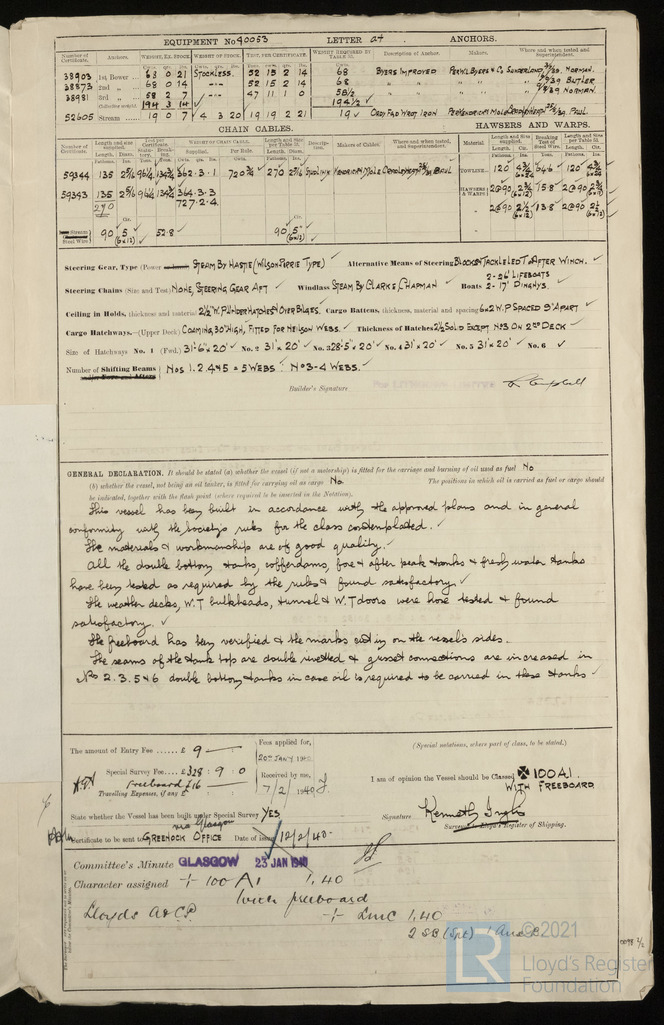 EQUIPMENT No 40053 LETTER at ANCHORS.
Number of Certificate. Anchors. WEIGHT, EX. STOCK. WEIGHT OF STOCK. TEST, PER CERTIFICATE. WEIGHT REQUIRED BY TABLE 53. Description of Anchor. Makers. Where and when tested and Superintendent.
38903 1st Bower 63 0 21 STOCKLESS. 52 15 2 14 68 BYERS IMPROVED PER W.L. BYERS & Co SUNDERLAND NORMAN.
38873 2nd 68 0 14 52 15 2 14 68 BUTLER
38981 3rd 58 2 7 47 11 1 0 58½ NORMAN.
Collective weight 194 3 14 194½
52605 Stream 19 0 7 4 3 20 19 19 2 21 19 ORDY FAD WGHT IRON PAUL
CHAIN CABLES. HAWSERS AND WARPS.
Number of Certificate. Length and size supplied. Test per Certificate. WEIGHT OF CHAIN CABLE. Length and Size per Table 53. Description. Makers of Cables. Where and when tested, and Superintendent. Material Length and Size supplied. Breaking Test of Steel Wire. Length and Size per Table 53.
59344 135 2 5/16 362·3·1 720¾ 270 2 5/16 STUD LINK PAUL TOWLINE 120 120
59343 135 2 5/16 364·3·3 HAWSERS & WARPS 2@90 15·8 2@90
270 727·2·4 2@90 13·8 2@90
Steel Wire 90 5 (6x12) 52·8 90 5 (6x12)
Steering Gear, Type (Power STEAM BY HASTIE (WILSON-PIRRIE TYPE) Alternative Means of Steering BLOCKS & TACKLE LED TO AFTER WINCH.
Steering Chains (Size and Test) NONE, STEERING GEAR AFT Windlass STEAM BY CLARKE, CHAPMAN Boats 2 - 26' LIFEBOATS
2 - 17' DINGHYS.
Ceiling in Holds, thickness and material 2½" W.P. UNDER HATCHES & OVER BILGES. Cargo Battens, thickness, material and spacing 6x2 W.P SPACED 9" APART
Cargo Hatchways.—(Upper Deck) COAMING 30" HIGH, FITTED FOR NEILSON WEBS. Thickness of Hatches 2½ SOLID EXCEPT No 3 ON 2ND DECK
Size of Hatchways No. 1 (Fwd.) 31'·6" x 20' No. 2 31' x 20' No. 3 28'·5" x 20' No. 4 31' x 20' No. 5 31' x 20' No. 6
Number of Shifting Beams Nos 1. 2. 4 & 5 = 5 WEBS : No 3 - 4 WEBS.
Builder's Signature Campbell
GENERAL DECLARATION. It should be stated (a) whether the vessel (if not a motorship) is fitted for the carriage and burning of oil used as fuel No
(b) whether the vessel, not being an oil tanker, is fitted for carrying oil as cargo No. The positions in which oil is carried as fuel or cargo should
be indicated, together with the flash point (where required to be inserted in the Notation).
This vessel has been built in accordance with the approved plans and in general
conformity with the Society's rules for the class contemplated.
The materials & workmanship are of good quality.
All the double bottom tanks, cofferdams, fore & after peak tanks & fresh water tanks
have been tested as required by the rules & found satisfactory.
The weather decks, W.T bulkheads, tunnel & W.T doors were hose tested & found
satisfactory.
The freeboard has been verified & the marks cut in on the vessel's sides.
The seams of the tank top are double rivetted & gusset connections are increased in
Nos 2. 3. 5 & 6 double bottom tanks in case oil is required to be carried in these tanks
The amount of Entry Fee £ 9 — : Fees applied for, 20TH JANY 1940 (Special notations, where part of class, to be stated.)
Special Survey Fee £328 : 9 : 0 Received by me,
Freeboard £16 — 7/2/1940 I am of opinion the Vessel should be Classed ✠ 100A1.
WITH FREEBOARD
Travelling Expenses, if any £
State whether the Vessel has been built under Special Survey YES Signature Kenneth Inglis
via Glasgow Surveyor to Lloyd's Register of Shipping.
Certificate to be sent to GREENOCK OFFICE Date of issue 12/2/40.
Committee's Minute GLASGOW 23 JAN 1940
Character assigned + 100 A1 1,40
with freeboard
Lloyds A & C.P. + LMC 1,40
2 SB (Spt)
© 2021
LR Lloyd's Register
Foundation